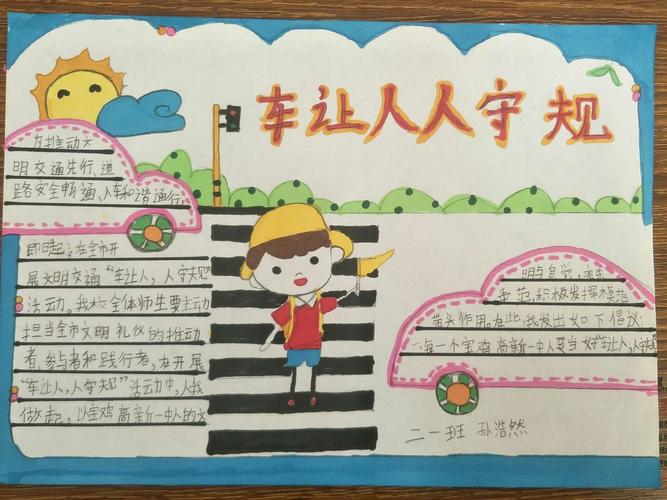 车让人人守规
为推动文
明交通先行、道
路安全畅通、人车和谐通行,
即日起,在全市开
展文明交通“车让人,人守规”
活动。我校全体师生要主动
担当全市文明礼仪的推动
者,参与者和践行者,在开展
“车让人,人守规”活动中,从我
做起。以宝鸡高新一中人的文
明与自觉,
示范,积极发挥模范
带头作用。在此,我发出如下倡议:
一、每一个宝鸡高新一中人要当好“车让人,人守规
二一班 孙浩然